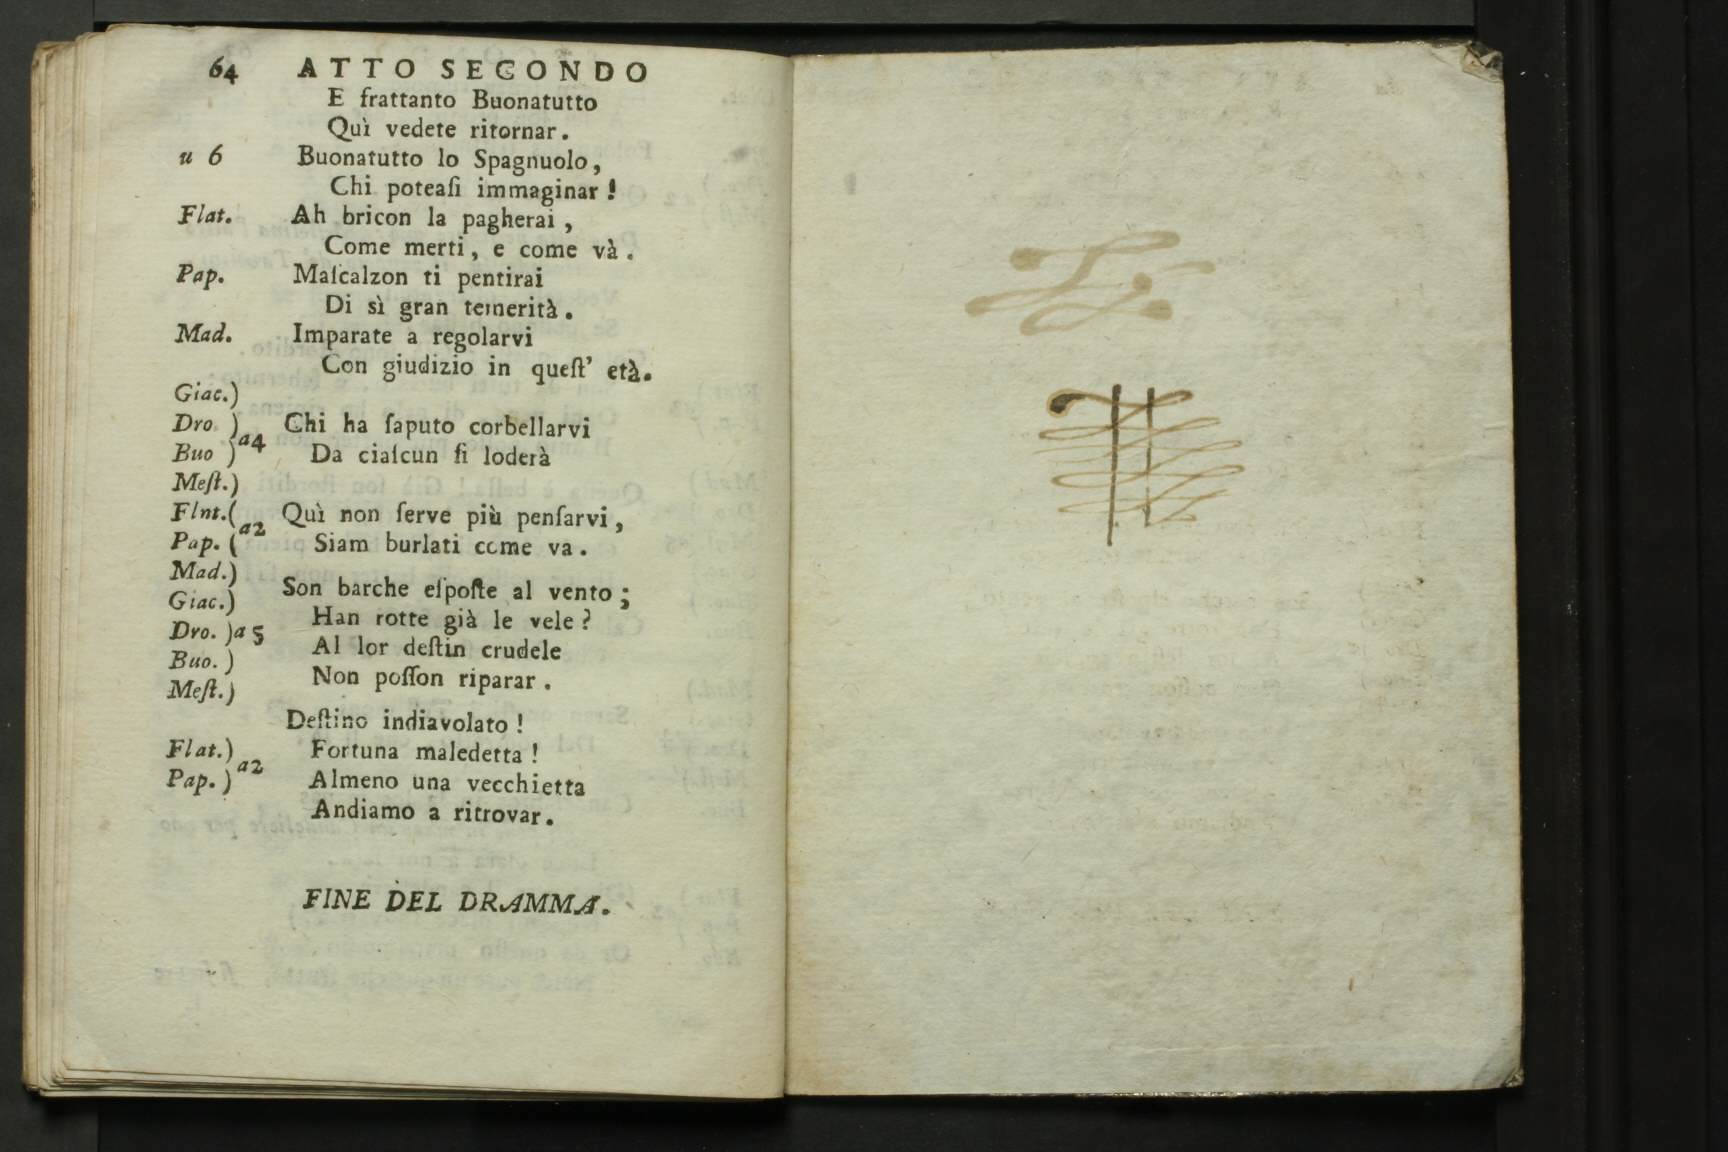 64 ATTO SECONDO
E frattanto Buonatutto
Quì vedete ritornar.
u 6 Buonatutto lo Spagnuolo,
Chi poteaſi immaginar!
Flat. Ah bricon la pagherai,
Come merti, e come và.
Pap. Maſcalzon ti pentirai
Di sì gran temerità.
Mad. Imparate a regolarvi
Con giudizio in queſt' età.
Giac.)
Dro ) Chi ha ſaputo corbellarvi
Buo ) a4 Da ciaſcun ſi loderà
Meſt.)
Flnt.( Quì non ſerve più penſarvi,
Pap. ( a2 Siam burlati come va.
Mad.)
Giac.) Son barche eſpoſte al vento;
Han rotte già le vele?
Dro. )a 5 Al lor deſtin crudele
Buo. ) Non poſſon riparar.
Meſt.)
Deſtino indiavolato!
Flat.) Fortuna maledetta!
Pap. ) a2 Almeno una vecchietta
Andiamo a ritrovar.
FINE DEL DRAMMA.